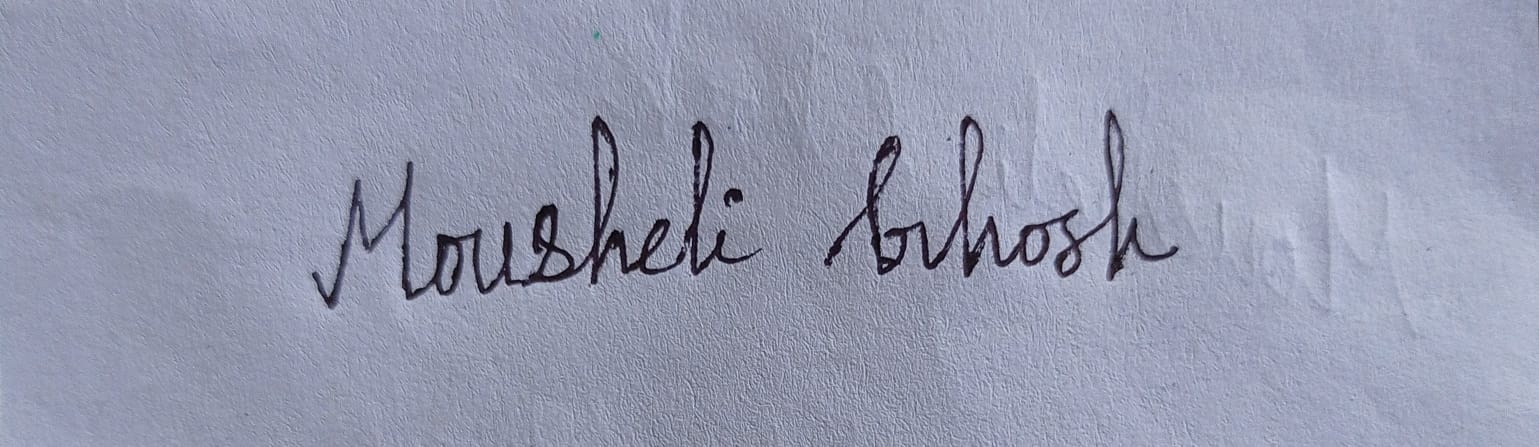 Mousheli Ghosh